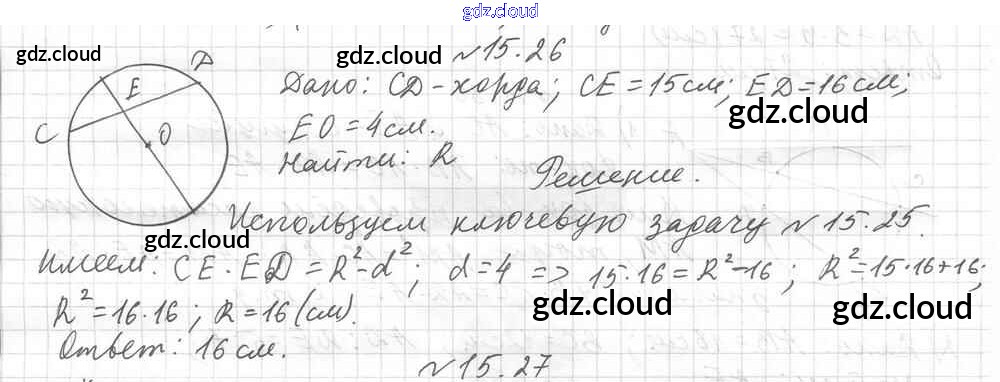 gdz.cloud
gdz.cloud gdz.cloud №15.26
D
E
C
O
Дано: CD-хорда; CE=15см; ED=16см;
gdz.cloud
EO=4см.
Найти: R
Решение.
Используем ключевую задачу №15.25.
gdz.cloud
Имеем: CE·ED=R²-d²; d=4 => 15·16=R²-16; R²=15·16+16;
gdz.cloud gdz.cloud
R²=16·16; R=16(см).
Ответ: 16см.
№15.27